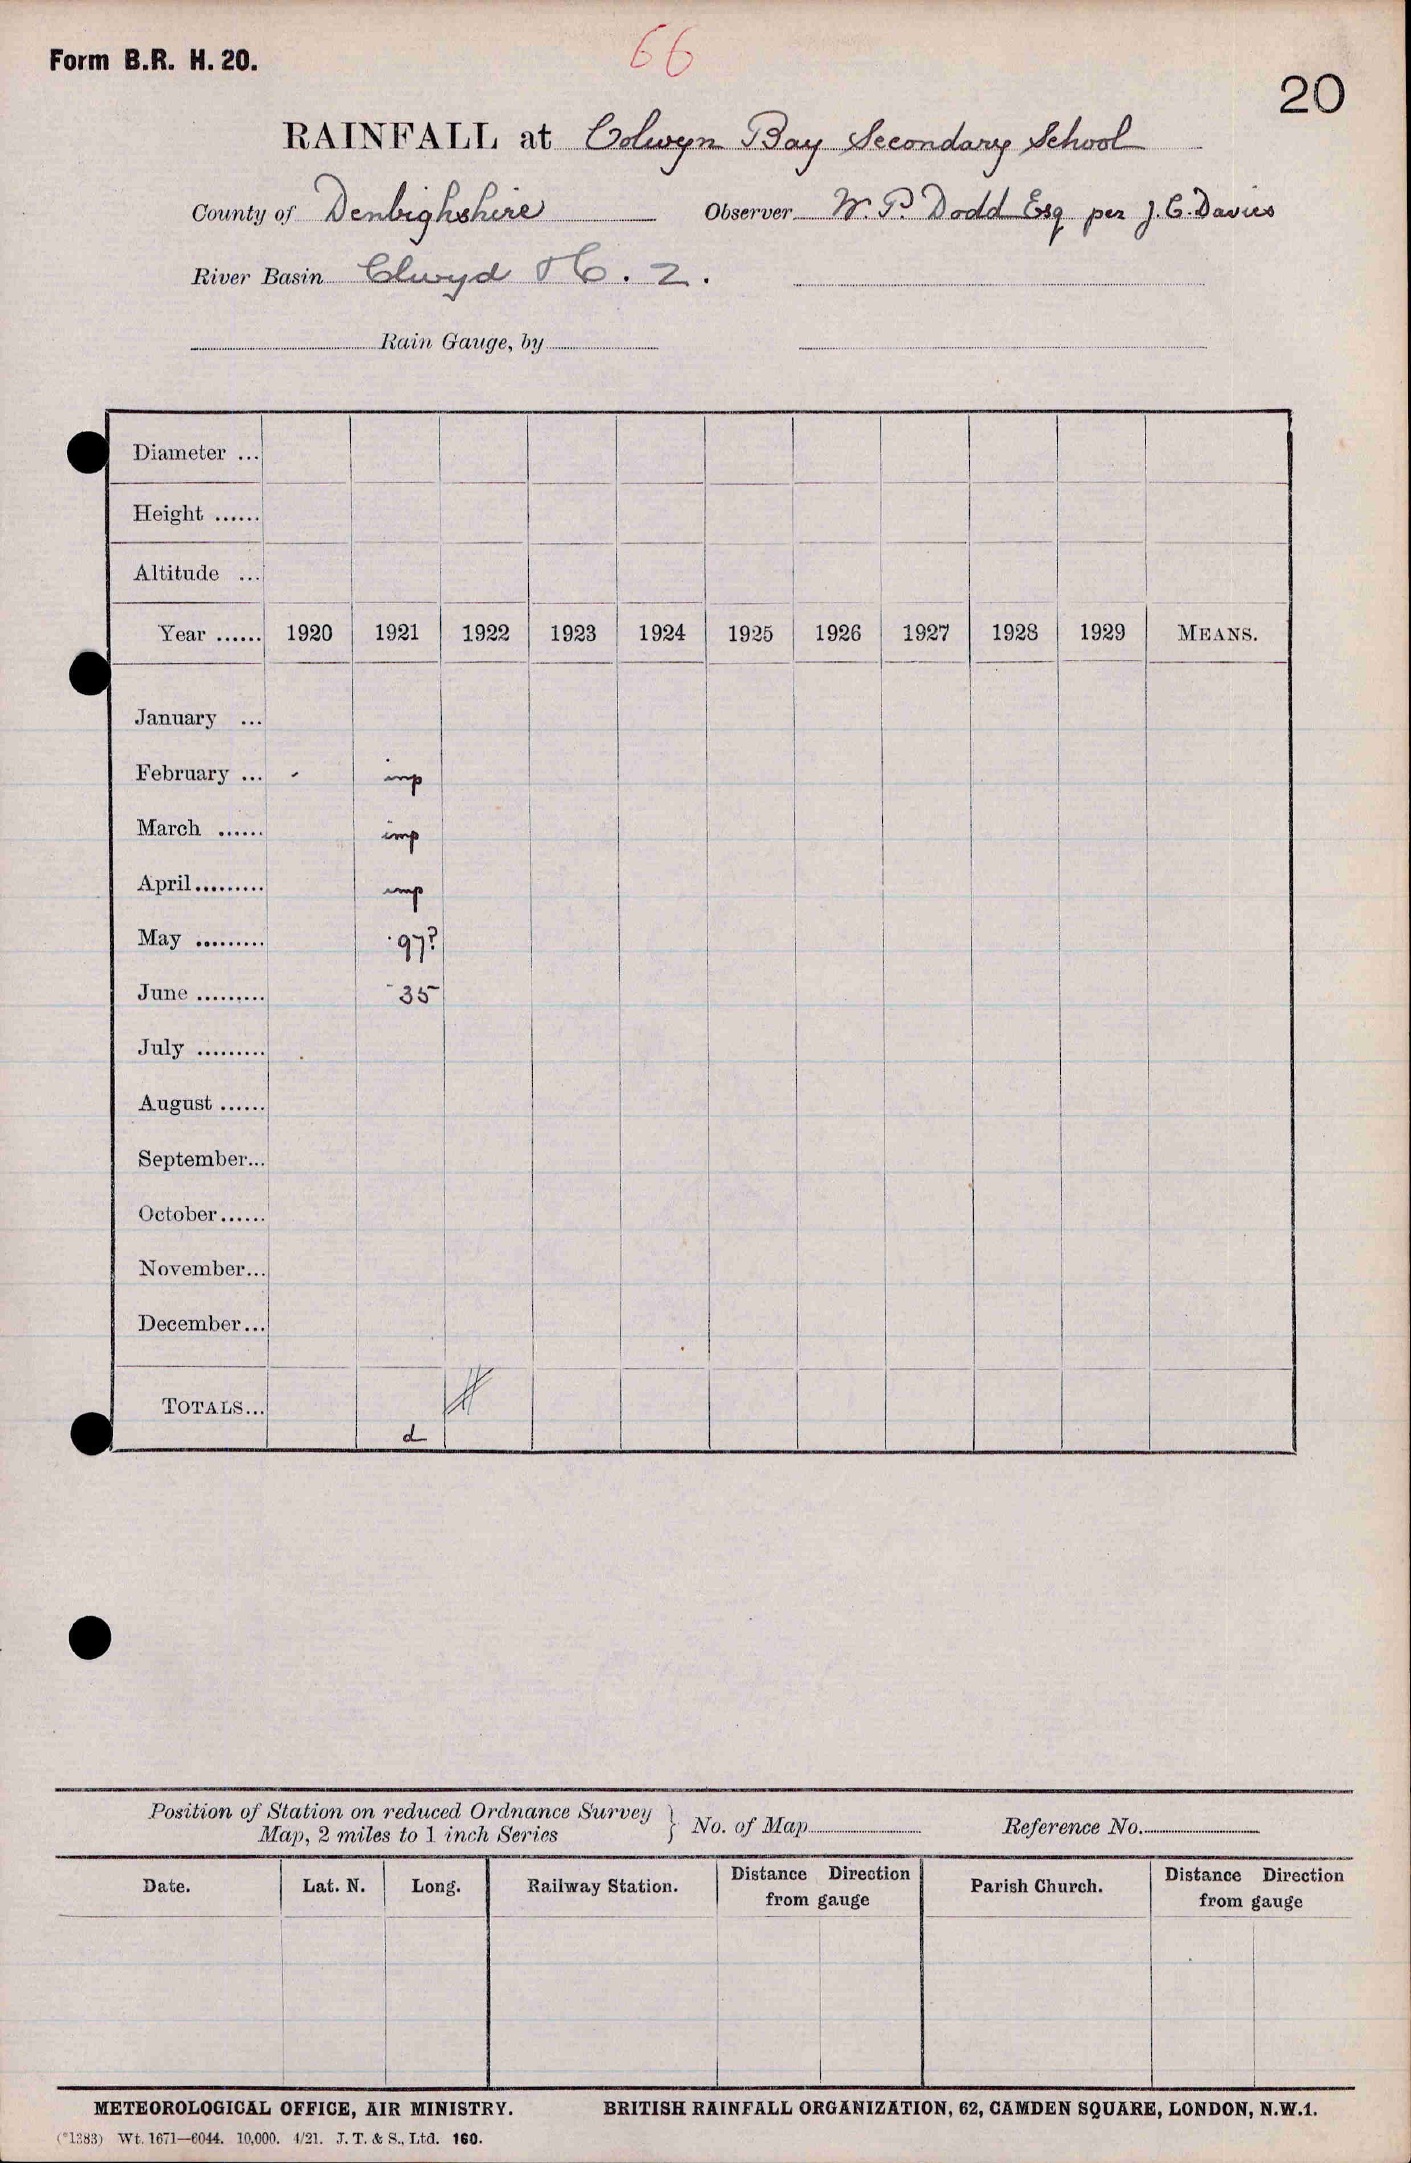 66
Form B.R. H. 20.
20
RAINFALL at Colwyn Bay Secondary School
County of Denbighshire Observer W. P. Dodd Esq per J. C. Davies
River Basin Clwyd &c. 2.
Rain Gauge, by
Diameter ...
Height ......
Altitude ...
Year ...... 1920 1921 1922 1923 1924 1925 1926 1927 1928 1929 MEANS.
January ...
February ... - imp
March ...... imp
April......... imp
May ......... ·97?
June ......... ·35
July .........
August ......
September...
October......
November...
December...
TOTALS...
d
Position of Station on reduced Ordnance Survey
Map, 2 miles to 1 inch Series } No. of Map Reference No.
Date. Lat. N. Long. Railway Station. Distance Direction from gauge Parish Church. Distance Direction from gauge
METEOROLOGICAL OFFICE, AIR MINISTRY. BRITISH RAINFALL ORGANIZATION, 62, CAMDEN SQUARE, LONDON, N.W.1.
(*1383) Wt. 1671—6044. 10,000. 4/21. J. T. & S., Ltd. 160.